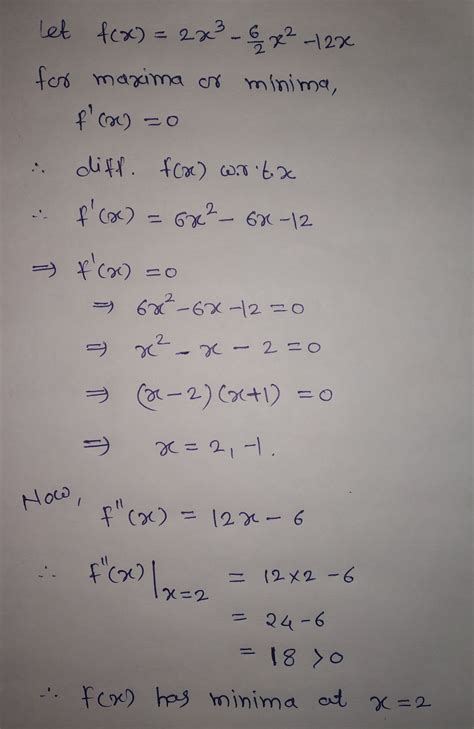 Let f(x) = 2x³ - 6/2 x² - 12x
for maxima or minima,
f'(x) = 0
∴ diff. f(x) w.r.t.x
∴ f'(x) = 6x² - 6x - 12
⇒ f'(x) = 0
⇒ 6x² - 6x - 12 = 0
⇒ x² - x - 2 = 0
⇒ (x-2)(x+1) = 0
⇒ x = 2, -1.
Now,
f''(x) = 12x - 6
∴ f''(x)|x=2 = 12×2 - 6
= 24 - 6
= 18 > 0
∴ f(x) has minima at x = 2